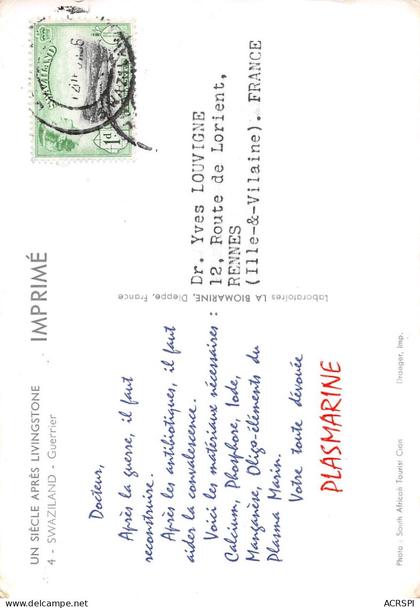 UN SIÈCLE APRÈS LIVINGSTONE
4 - SWAZILAND - Guerrier
IMPRIMÉ
Docteur,
Après la guerre, il faut
reconstruire.
Après les antibiotiques, il faut
aider la convalescence.
Voici les matériaux nécessaires :
Calcium, Phosphore, Iode,
Manganèse, Oligo-éléments du
Plasma Marin.
Votre toute dévouée
PLASMARINE
Photo : South African Tourist Cion
Draeger, Imp.
Laboratoires LA BIOMARINE, Dieppe, France
SWAZILAND
1d
Dr. Yves LOUVIGNE
12, Route de Lorient,
RENNES
(Ille-&-Vilaine). FRANCE
delcampe.net
ACRSPI